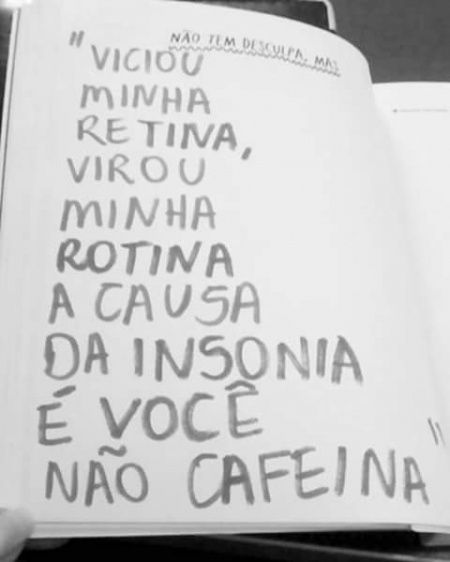 NÃO TEM DESCULPA, MAS
"VICIOU
MINHA
RETINA,
VIROU
MINHA
ROTINA
A CAUSA
DA INSONIA
É VOCÊ
NÃO CAFEINA"